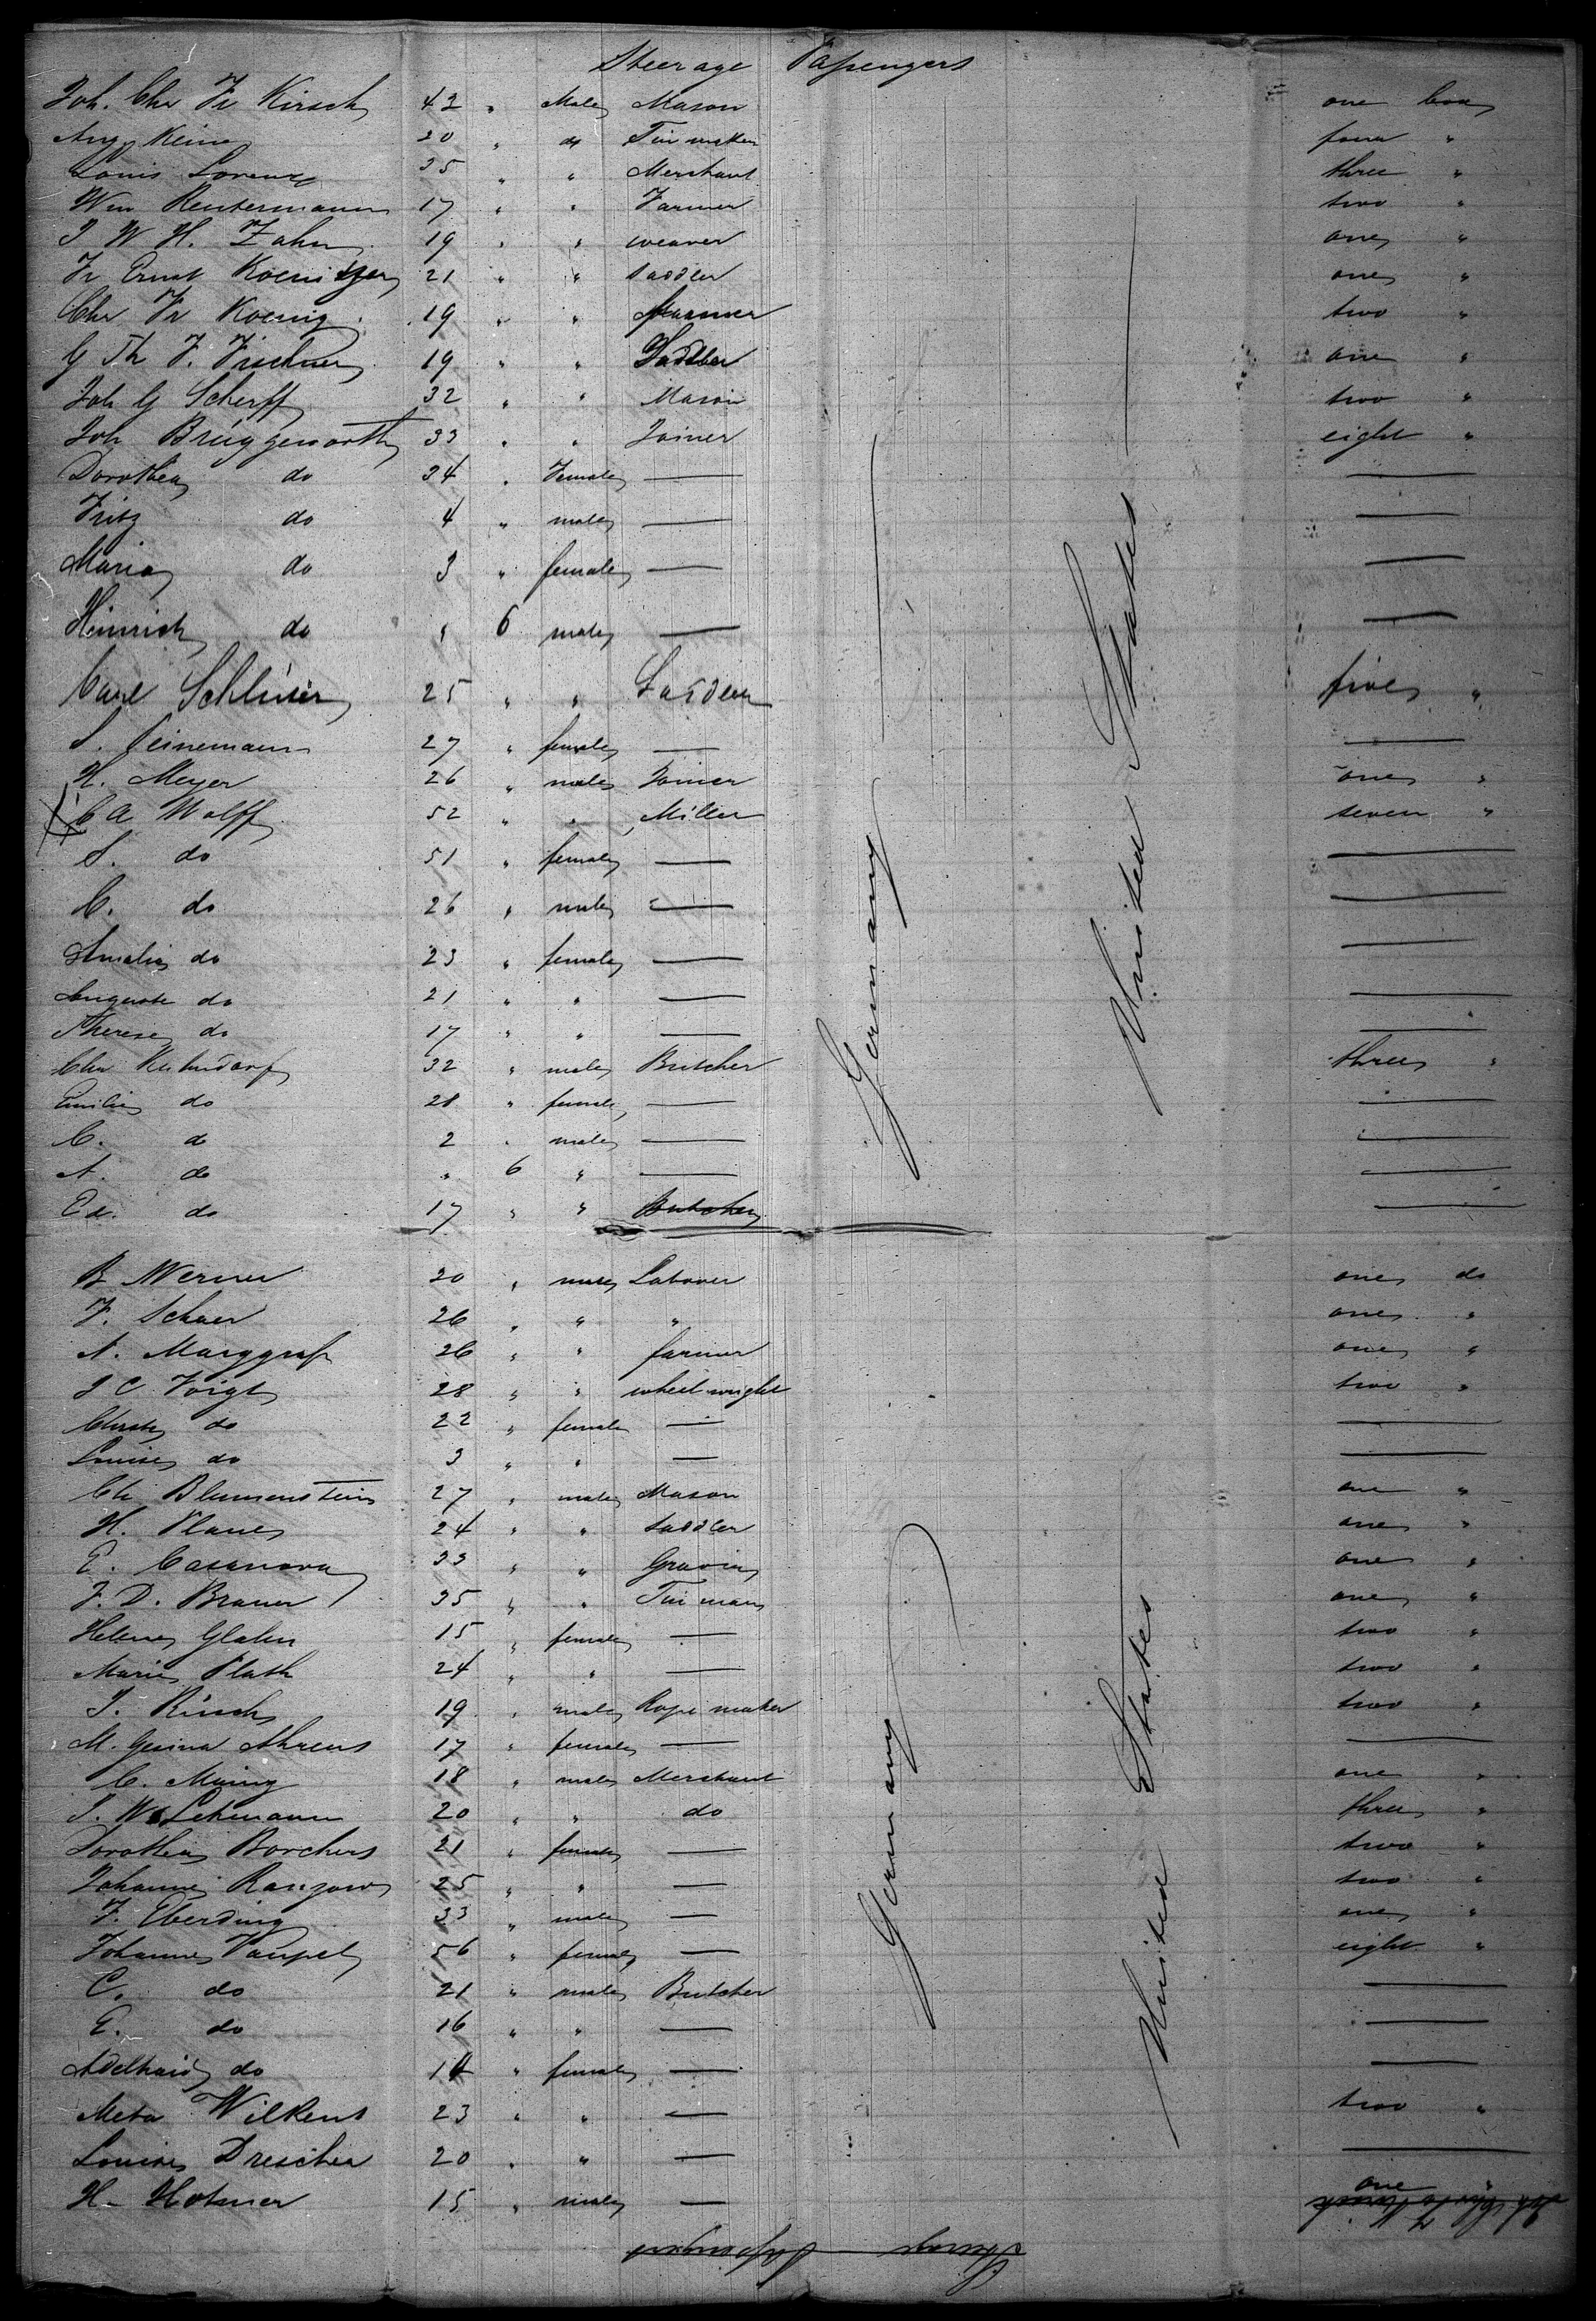 Steerage Passengers
Joh. Chr Fr Kirsch 42 " Male Mason one box
Aug Keine 20 " do Tin maker four "
Louis Lorenz 35 " " Merchant three "
Wm Rentermann 17 " " Farmer two "
J W H. Zahn 19 " " weaver one "
Fr Ernst Koenitzer 21 " " saddler one "
Chr Fr Koenig 19 " " two "
G Th F. Fischer 19 " " Saddler one "
Joh G Scherff 32 " " Mason two "
Joh Brüggeworth 33 " " Joiner eight "
Dorothea do 34 " Female — —
Fritz do 4 " male — —
Maria do 3 " female — —
Hinrich do " 6 male — —
Carl Schlüsier 25 " " five "
S. Heinemann 27 " female — —
H. Meyer 26 " male Joiner one "
C A Wolff 52 " " Miller seven "
S. do 51 " female — —
C. do 26 " male — —
Amalia do 23 " female — —
Auguste do 21 " " — —
Therese do 17 " " — —
Chr Kuhndorf 32 " male Butcher three "
Emilie do 28 " female — —
C. do 2 " male — —
A. do " 6 " — —
Ed. do 17 " " Butcher —
Germany United States
B Werner 20 " male Laborer one do
F. Schaer 26 " " " one "
A. Marggraf 26 " " farmer one "
J C Voigt 28 " " wheel wright two "
do 22 " female — —
Louise do 3 " " — —
Ch Blumenstein 27 " male Mason one "
H. Plaue 24 " " saddler one "
E. Casanova 33 " " one "
F. D. Braner 35 " " Tin man one "
Helene Glahn 15 " female — two "
Marie Plath 24 " " — two "
J. Rüsch 19 " male Rope maker two "
M. Gesina Ahrens 17 " female — —
C. Müing 18 " male Merchant one "
J. W. Lehmann 20 " " do three "
Dorothea Borchers 21 " female — two "
Johanne Ranzow 25 " " — two "
F. Eberding 33 " male — one "
Johanne Vaupel 56 " female — eight "
C. do 21 " male Butcher —
E. do 16 " " — —
Adelhaid do 14 " female — —
Meta Wilkens 23 " " — two "
Louise Drescher 20 " " — —
H. Hotmer 15 " male — one "
Germany United States
Joh Chr Fr Kirsch
Steerage Passengers